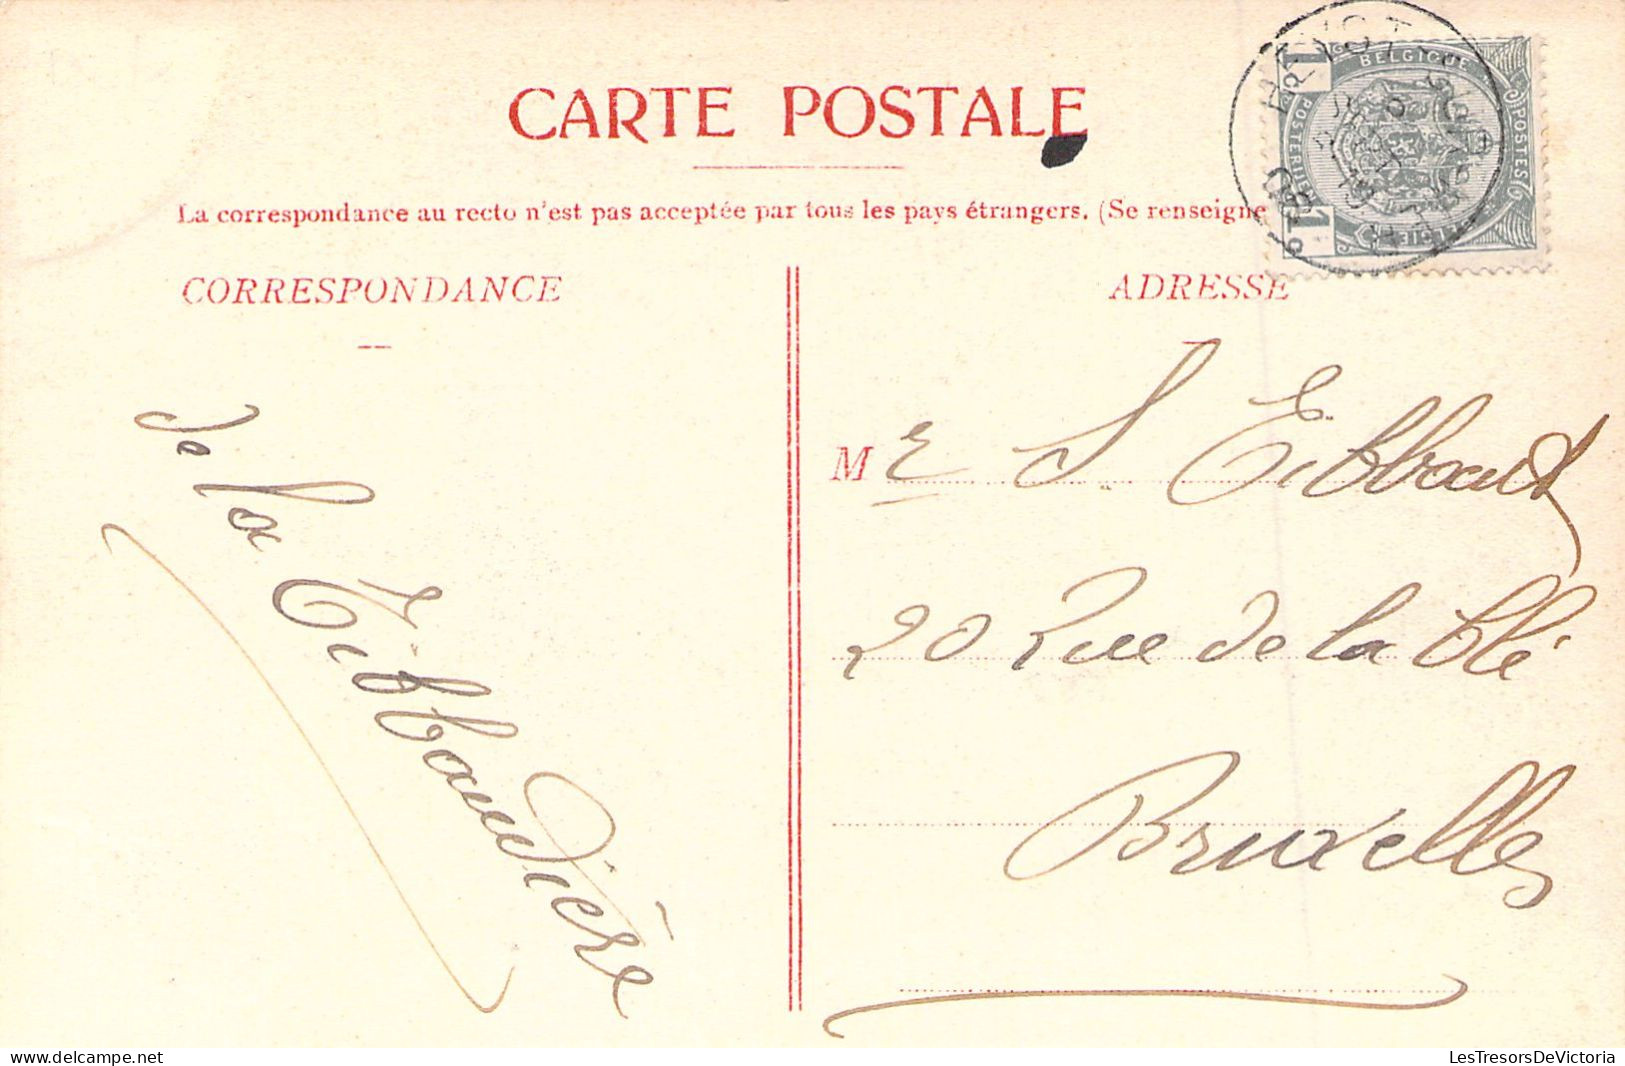 CARTE POSTALE
La correspondance au recto n'est pas acceptée par tous les pays étrangers. (Se renseigne
CORRESPONDANCE
ADRESSE
BELGIQUE
POSTES
1
1
de la Tibbaudière
Mr S. Tibbaut
20 Rue de la Clé
Bruxelles
delcampe.net
LesTresorsDeVictoria